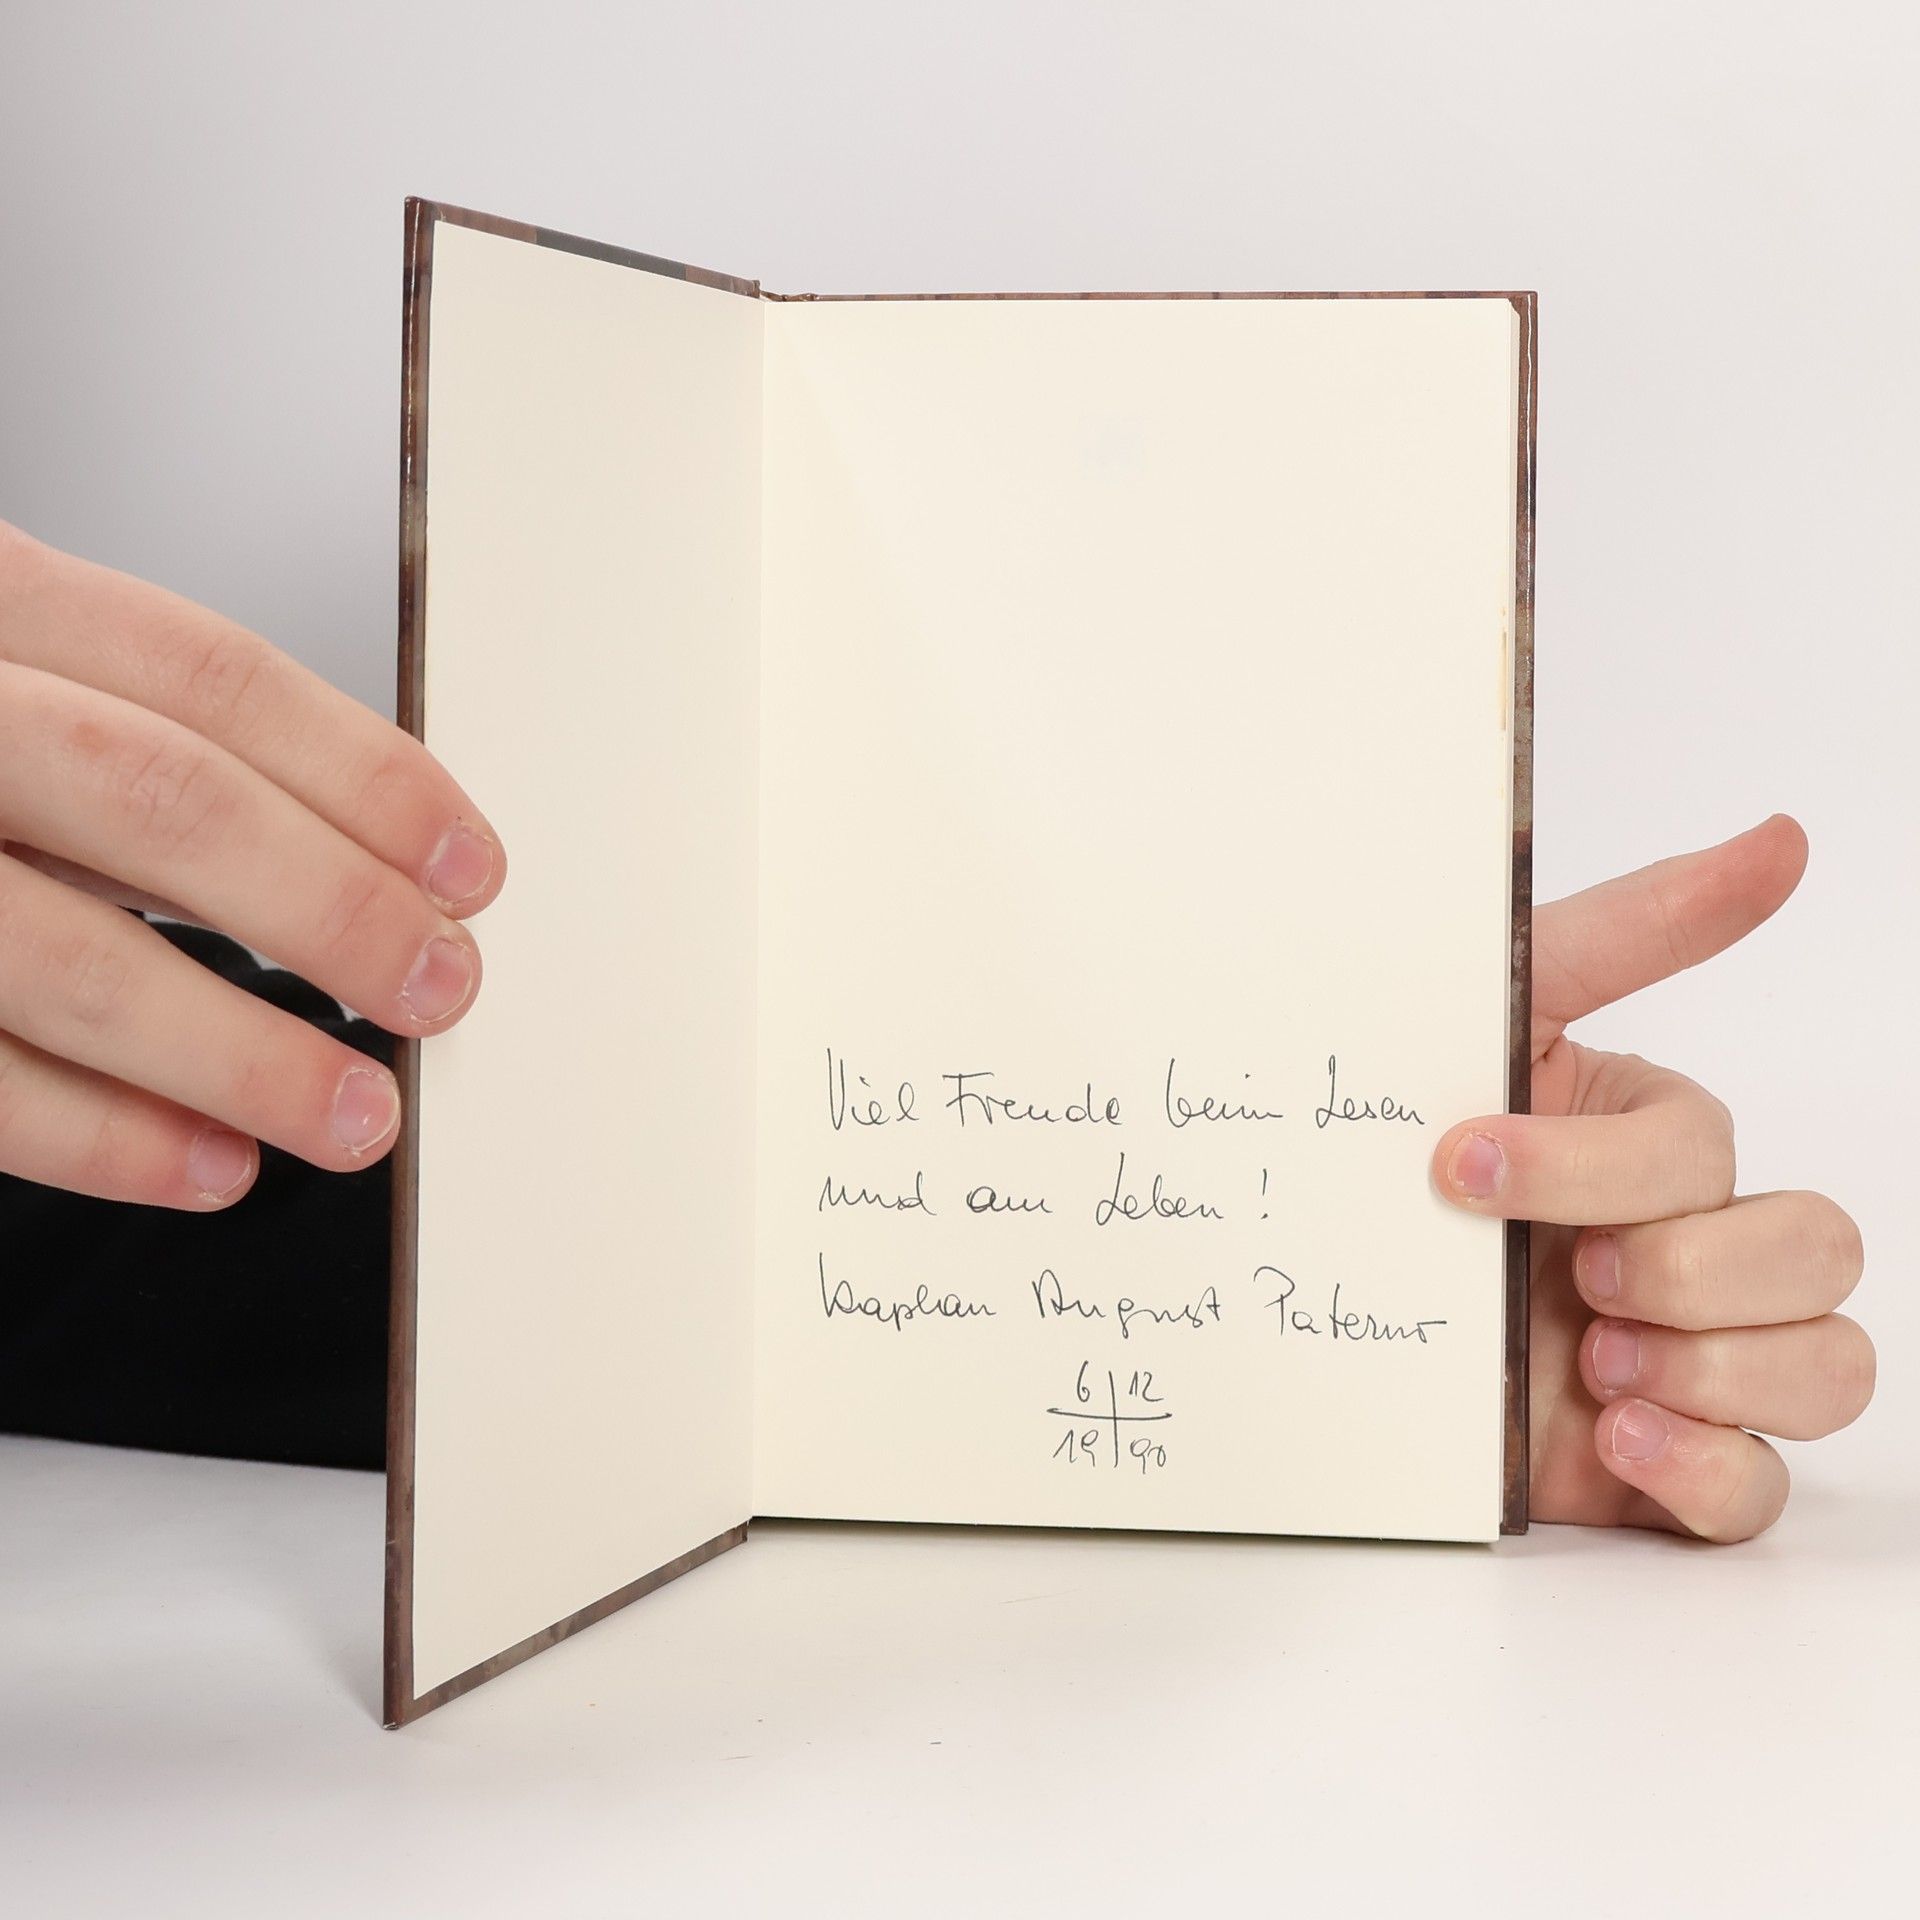 Viel Freude beim Lesen
und am Leben!
Kaplan August Paterno
6 12
19 90